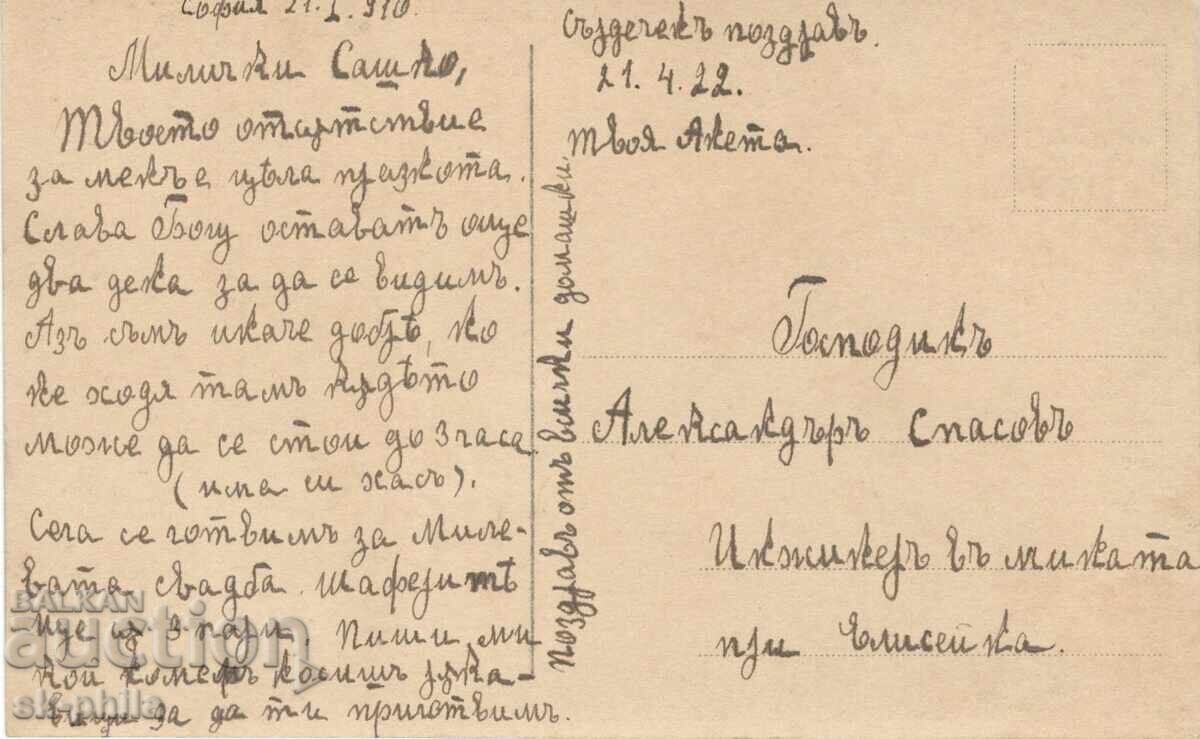 София 21.I.910.
Милички Сашко,
Твоето отсѫтствие
за мене е цѣла празнота.
Слава Богу оставатъ още
два дена за да се видимъ.
Азъ съмъ иначе добрѣ, но
не ходя тамъ кѫдѣто
може да се стои до 3 часа
(има ли насъ).
Сега се готвимъ за Миле-
вата свадба. Шаферитѣ
ще ѫ 3 пари. Пиши ми
кой номеръ носишъ рѫка-
вици за да ти приготвимъ.
Поздравъ отъ всички домашни.
Сърдеченъ поздравъ.
21.4.22.
твоя Анета.
Господинъ
Александъръ Спасовъ
Инжинеръ въ мината
при Елисейна.
BALKAN
auction
sk-phila